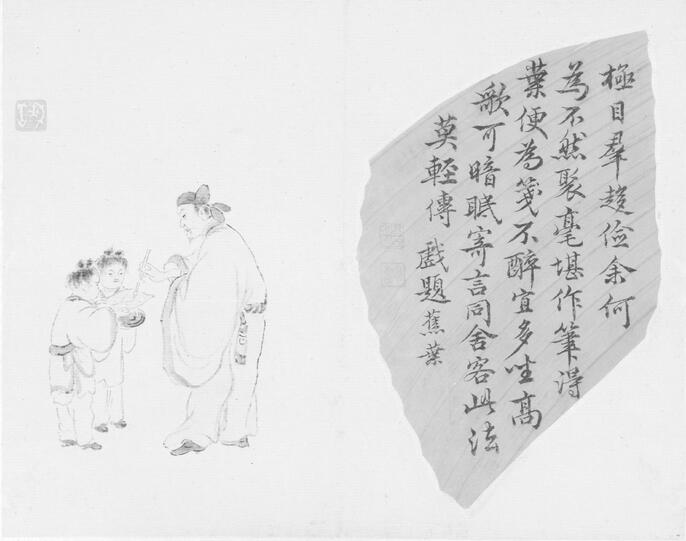 極目羣趍儉余何
為不然聚毫堪作筆得
葉便為箋不醉宜多坐高
歌可暗眠寄言同舍客此法
莫輕傳 戲題蕉葉